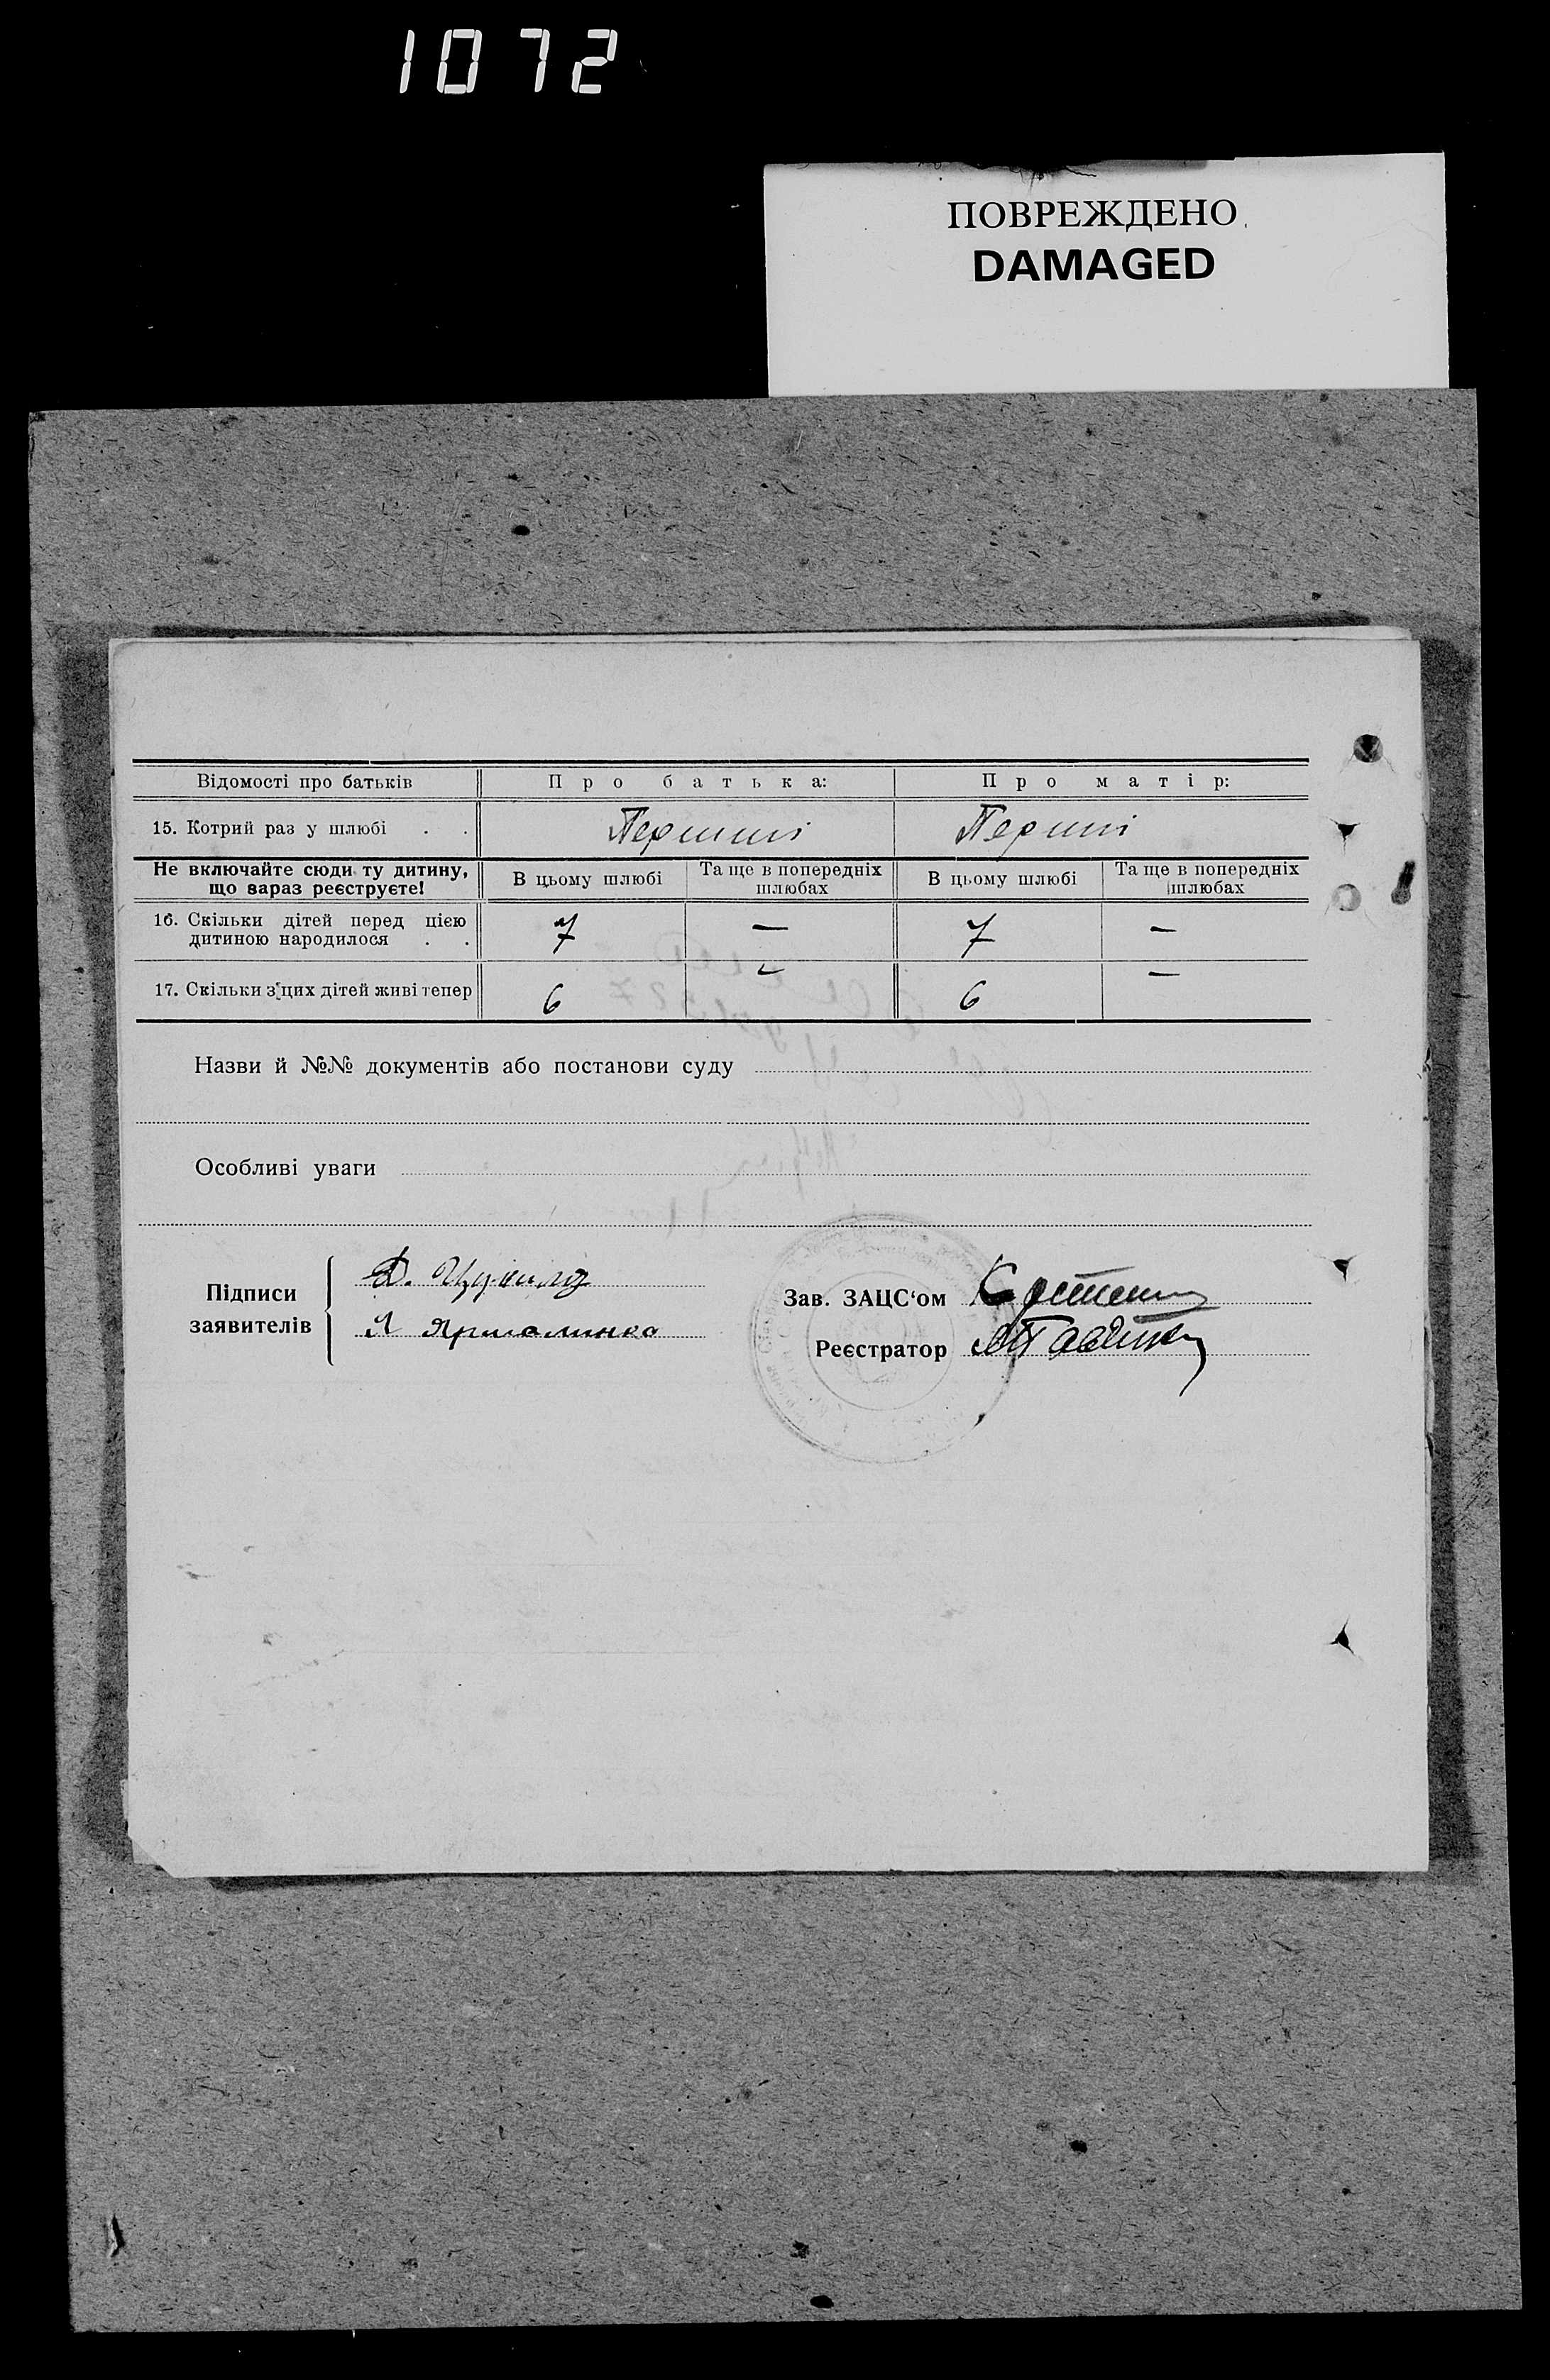 1072
ПОВРЕЖДЕНО
DAMAGED
Відомості про батьків Про батька: Про матір:
15. Котрий раз у шлюбі . . Перший Перший
Не включайте сюди ту дитину, що вараз реєструєте! В цьому шлюбі Та ще в попередніх шлюбах В цьому шлюбі Та ще в попередніх шлюбах
16. Скільки дітей перед цією
дитиною народилося . . 7 — 7 —
17. Скільки з цих дітей живі тепер 6 — 6 —
Назви й №№ документів або постанови суду
Особливі уваги
Підписи
заявителів
Зав. ЗАЦС‘ом
Реєстратор